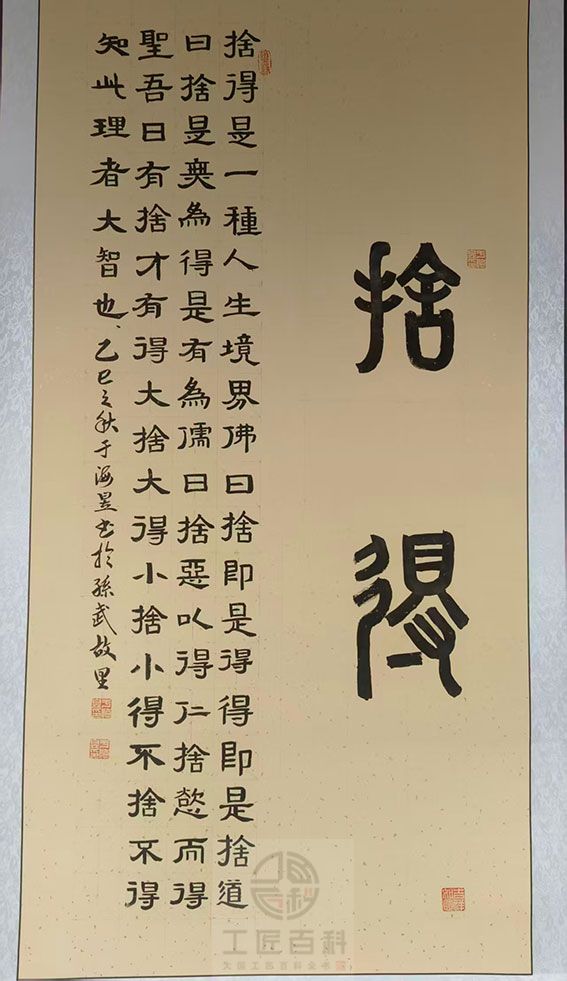 捨得
捨得是一種人生境界佛曰捨即是得得即是捨道
曰捨是無為得是有為儒曰捨惡以得仁捨慾而得
聖吾曰有捨才有得大捨大得小捨小得不捨不得
知此理者大智也、乙巳之秋于海昱书於孫武故里
工匠百科